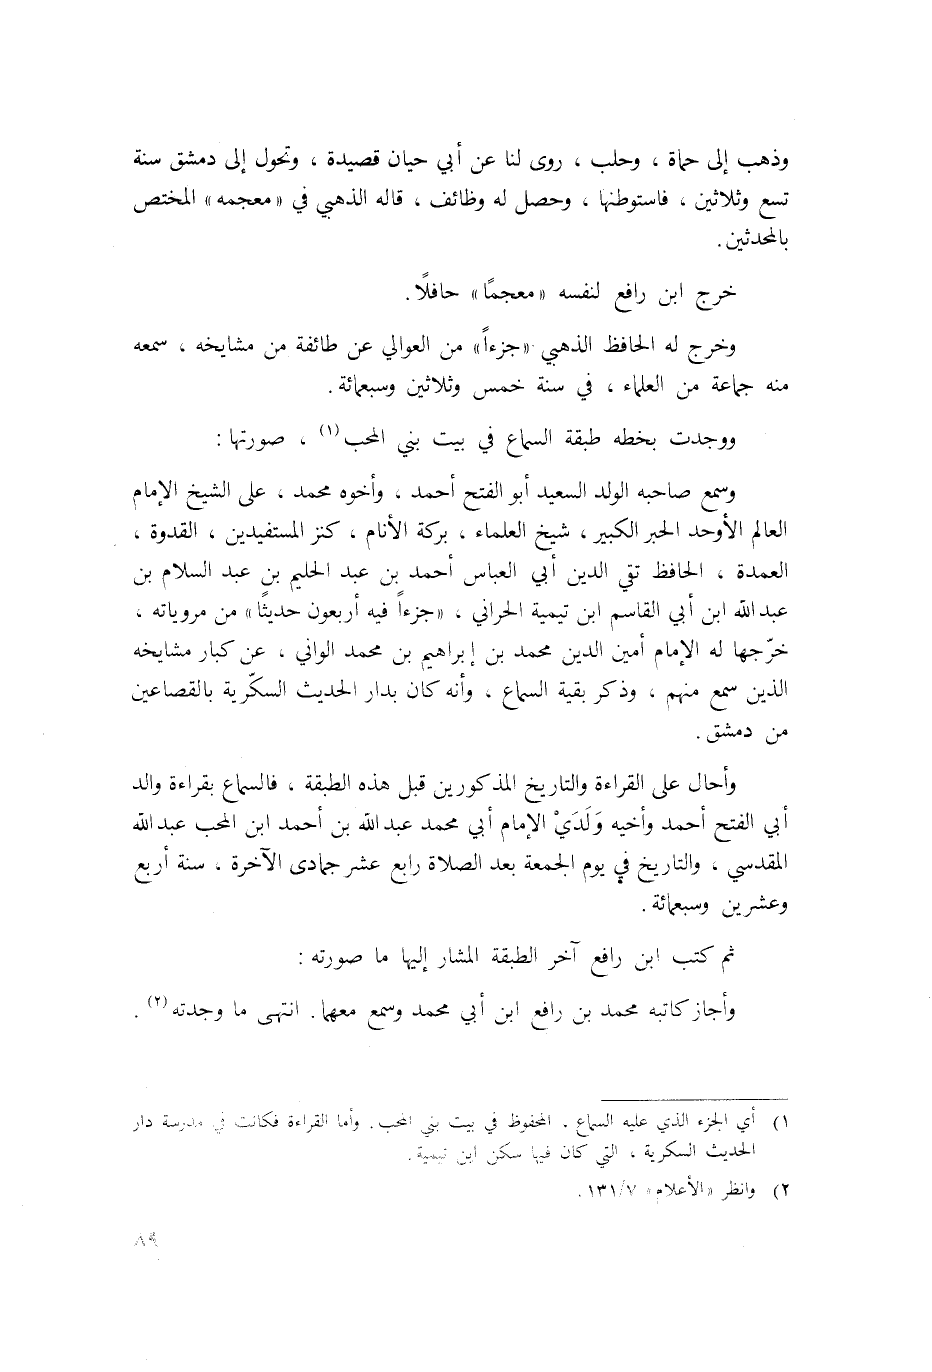 وذهب إلى حماة ، وحلب ، روى لنا عن أبي حيان قصيدة ، وتحول إلى دمشق سنة
تسع وثلاثين ، فاستوطنها ، وحصل له وظائف ، قاله الذهبي في «معجمه» المختص
بالمحدثين.
خرج ابن رافع لنفسه «معجمًا» حافلًا.
وخرج له الحافظ الذهبي «جزءاً» من العوالي عن طائفة من مشايخه ، سمعه
منه جماعة من العلماء ، في سنة خمس وثلاثين وسبعمائة.
ووجدت بخطه طبقة السماع في بيت بني المحب(١) ، صورتها :
وسمع صاحبه الولد السعيد أبو الفتح أحمد ، وأخوه محمد ، على الشيخ الإمام
العالم الأوحد الحبر الكبير ، شيخ العلماء ، بركة الأنام ، كنز المستفيدين ، القدوة ،
العمدة ، الحافظ تقي الدين أبي العباس أحمد بن عبد الحليم بن عبد السلام بن
عبدالله ابن أبي القاسم ابن تيمية الحراني ، «جزءاً فيه أربعون حديثًا» من مروياته ،
خرّجها له الإمام أمين الدين محمد بن إبراهيم بن محمد الواني ، عن كبار مشايخه
الذين سمع منهم ، وذكر بقية السماع ، وأنه كان بدار الحديث السكّرية بالقصاعين
من دمشق.
وأحال على القراءة والتاريخ المذكورين قبل هذه الطبقة ، فالسماع بقراءة والد
أبي الفتح أحمد وأخيه وَلَدَيْ الإمام أبي محمد عبدالله بن أحمد ابن المحب عبدالله
المقدسي ، والتاريخ في يوم الجمعة بعد الصلاة رابع عشر جمادى الآخرة ، سنة أربع
وعشرين وسبعمائة.
ثم كتب ابن رافع آخر الطبقة المشار إليها ما صورته :
وأجاز كاتبه محمد بن رافع ابن أبي محمد وسمع معهما. انتهى ما وجدته(٢).
١) أي الجزء الذي عليه السماع. المحفوظ في بيت بني المحب. وأما القراءة فكانت في مدرسة دار
الحديث السكرية ، التي كان فيها سكن ابن تيمية.
٢) وانظر «الأعلام» ١٣١/٧.
٨٩